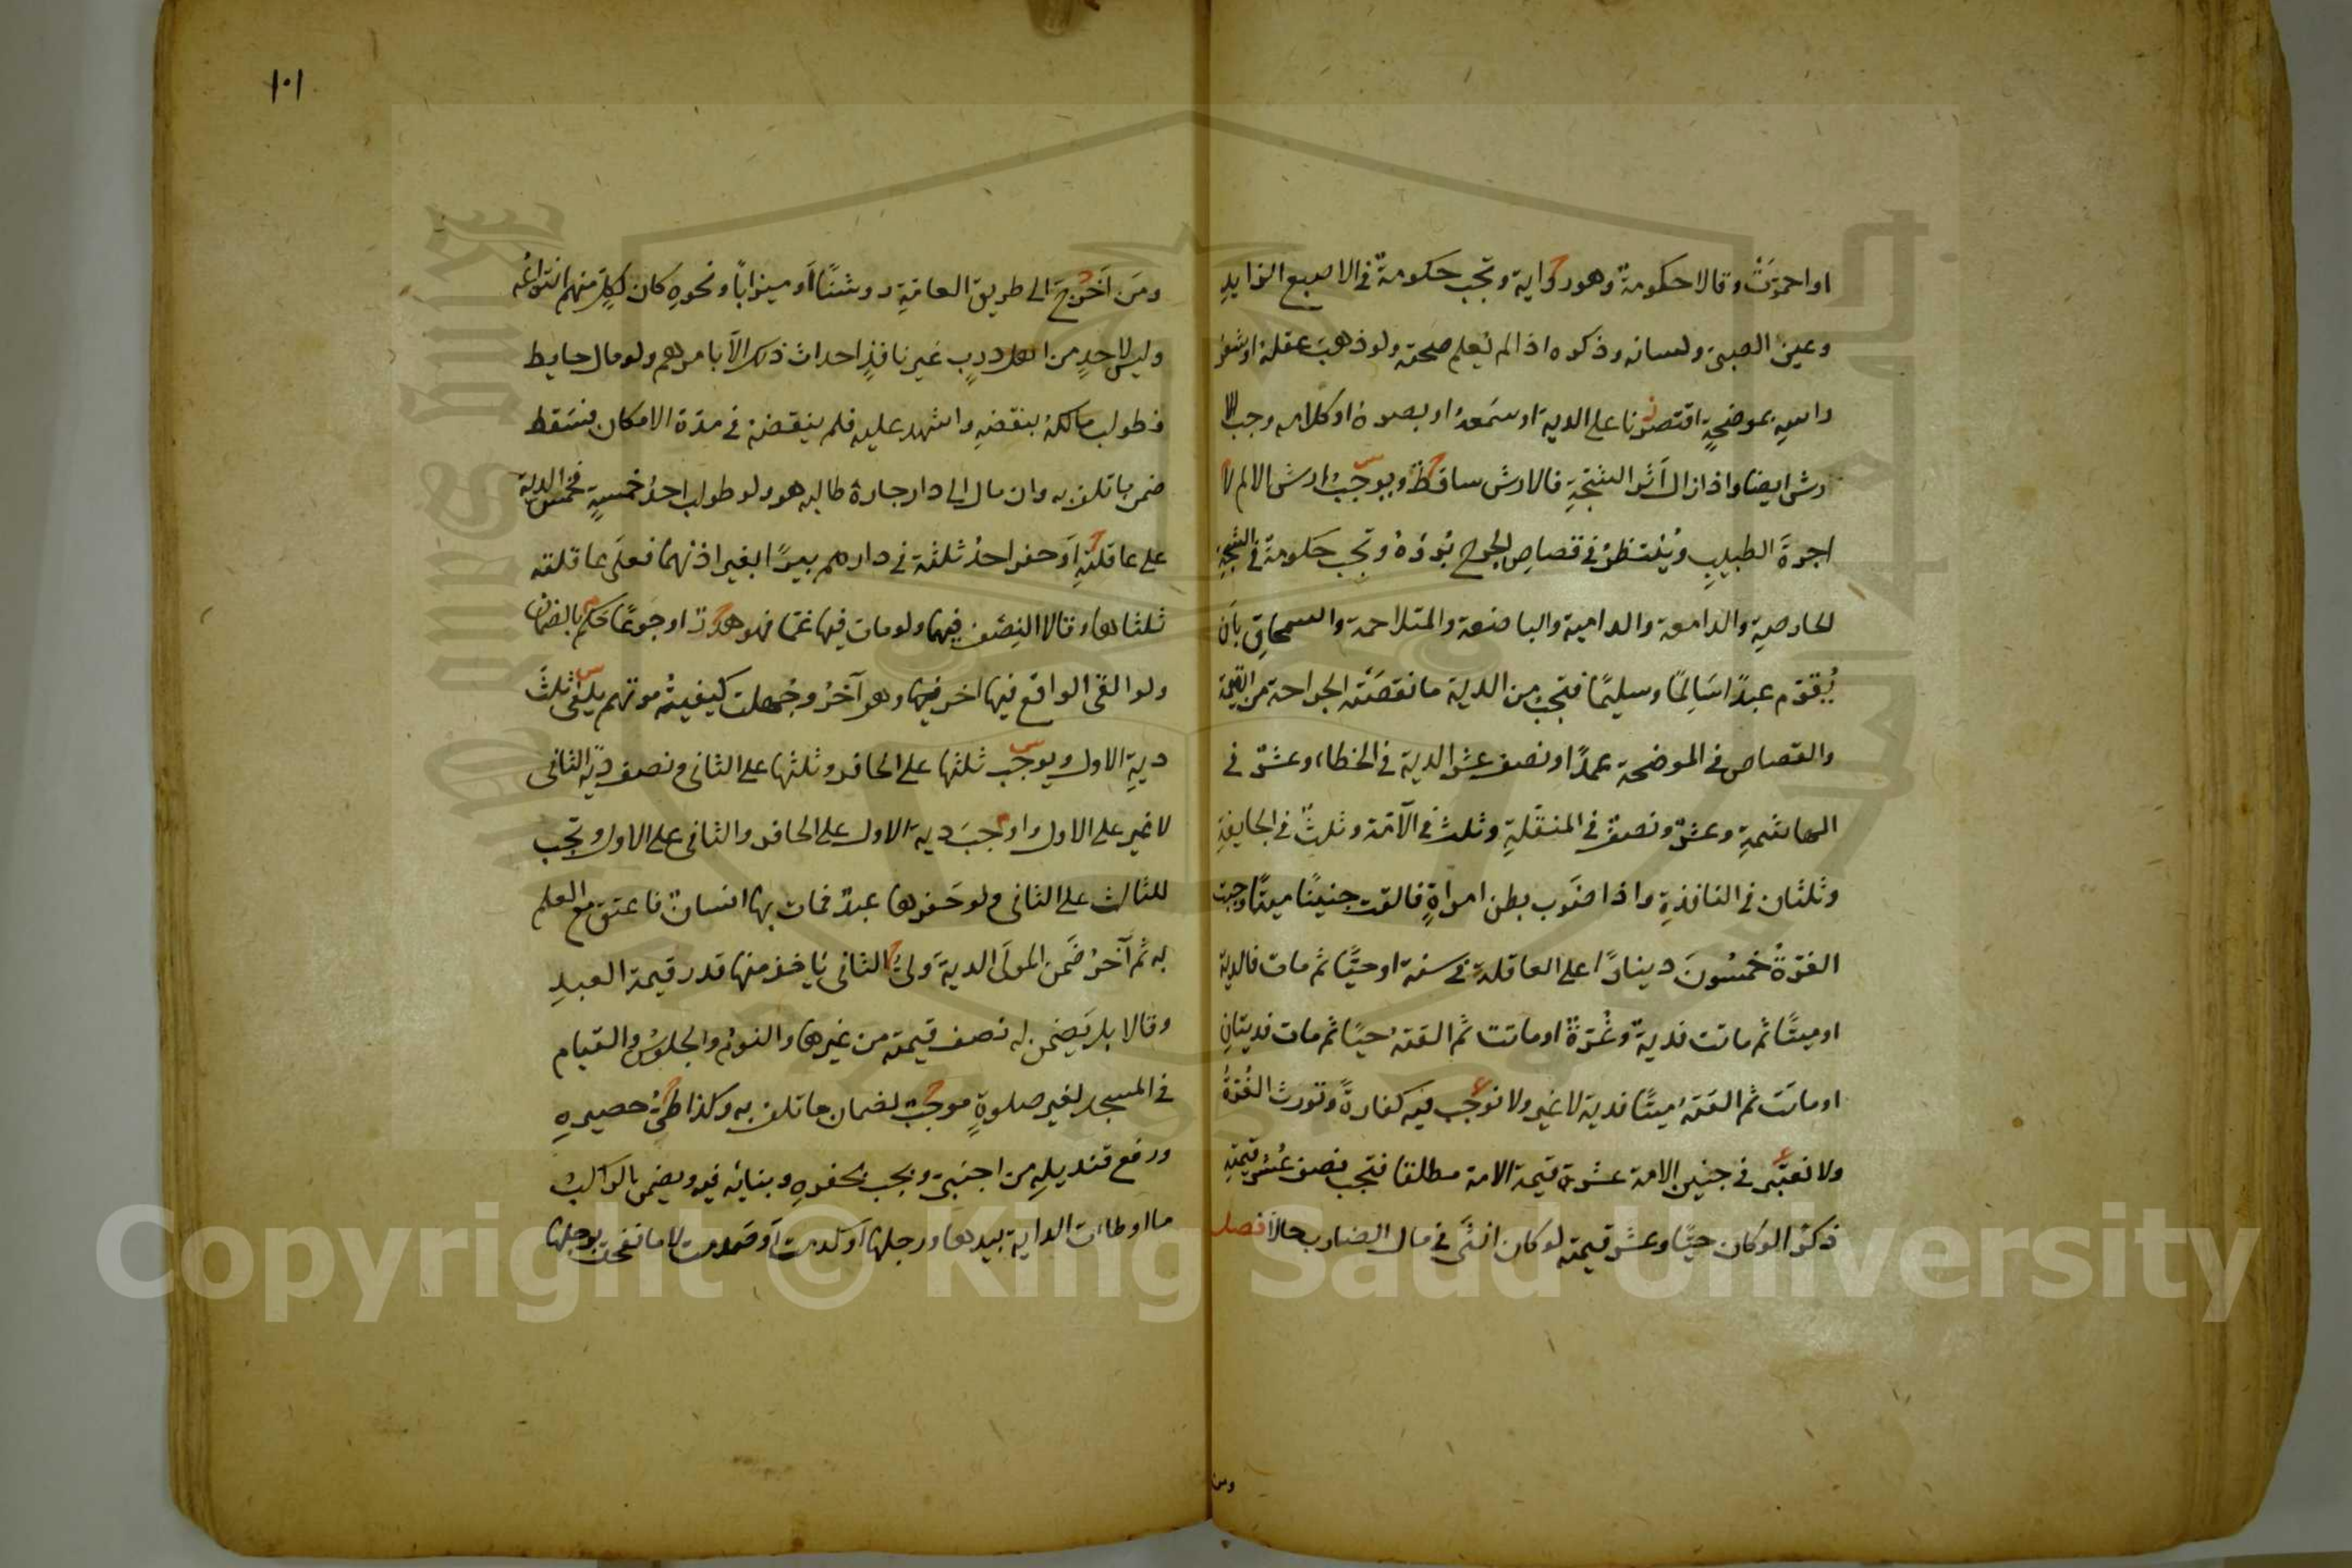 او احمرّت وقالا حكومةٌ وهو رواية وتجب حكومةٌ في الاصبع الزايدِ
وعين الصبيّ ولسانه وذكره اذا لم تُعلم صحته ولو ذهب عقله او شعر
راسِهِ بموضحةٍ اقتصرنا على الدية او سَمعهُ او بصره او كلامه وجب الا
رش ايضا واذا زال اَثر الشجّةِ فالارش ساقطٌ ويوجبُ ارش الالم لا
اجرةَ الطبيبِ ويُنتظرُ في قصاصِ الجرحِ بُرؤهُ وتجب حكومةٌ في الشجّةِ
الحارصةِ والدامعة والدامية والباضعة والمتلاحمة والسمحاقِ بان
يُقوّم عبدًا سَالِمًا وسليمًا فتجبُ من الدية ما نقصَتْه الجراحة من القيمة
والقصاص في الموضحة عمدًا ونصف عشر الدية في الخطاء وعشرٌ في
الهاشمةِ وعشرٌ ونصفٌ في المنقلةِ وثلث في الآمّة وثلثٌ في الجايفةِ
وثلثان في النافذةِ واذا ضرب بطن امراةٍ فالقت جنينًا ميتًا وجبت
الغرّةُ خمسُونَ دينارًا على العاقلة في سنة او حيًّا ثم مات فالدية
او ميتًا ثم ماتت فديةٌ وغُرّةٌ او ماتت ثم القتهُ حيًا ثم مات فديتانِ
او ماتَت ثم القتهُ ميتًا فدية لا غير ولا نوجب فيه كفارةً وتورث الغُرّةُ
ولا نعتبر في جنين الامة عشرة قيمة الامة مطلقا فتجب نصف عُشر قيمتهِ
ذكرًا لو كان حيًّا وعشر قيمته لو كان انثَى في مال الضارب حالًا فصل
ومن
١٠١
ومَن اَخرَج الى طريق العامّةِ روشنًا اَو ميزابًا ونحوهِ كان لكلٍّ منهم انتزاعُه
وليس لاحدٍ من اهل دربٍ غير نافذٍ احداث ذلك الاّ بامرهم ولو مال حايط
فطولب مالكهُ بنقضهِ واشهد عليه فلم ينقضهُ في مدّة الامكان فسَقط
ضمن ما تلف به وان مال الى دار جاره طالبه هو ولو طولب احدُ خمسةٍ فخمس الدية
على عاقلتهِ اَو حفر احدُ ثلثة في دارهم بيرًا بغير اذنهما فعلَى عاقلته
ثلثاها وقالا النِصف فيهما ولو مات فيها غمّا فهو هدرٌ او جوعًا حكم بالضمان
ولو القَى الواقع فيها اخر فيها وهو آخرُ وجُهلت كيفيةُ موتهم يلغى ثلثُ
ديةِ الاول ويوجب ثلثها على الحافر وثلثها على الثاني ونصف ديّة الثاني
لا غير على الاول واوجبَ دية الاول على الحافر والثاني على الاول وتجب
للثالث على الثاني ولو حَفرها عبدٌ فمات بها انسانٌ فاعتق مع العلم
به ثم آخرُ ضَمن المولَى الديةَ وليُّ الثاني ياخذ منها قدر قيمة العبدِ
وقالا بل يَضمن له نصف قيمته من غيرها والنومُ والجلوسُ والقيام
في المسجد لغير صلوةٍ موجبٌ لضمان ما تلف به وكذا طيُّ حصيرهِ
ورفع قنديلهِ من اجنبيّ ويجب بحفرهِ وبنايه فيه ويضمن الراكبُ
ما اوطاات الدابة بيدها ورجلها اَو كدمت اَو صَدمت لا ما نفحت برجلها